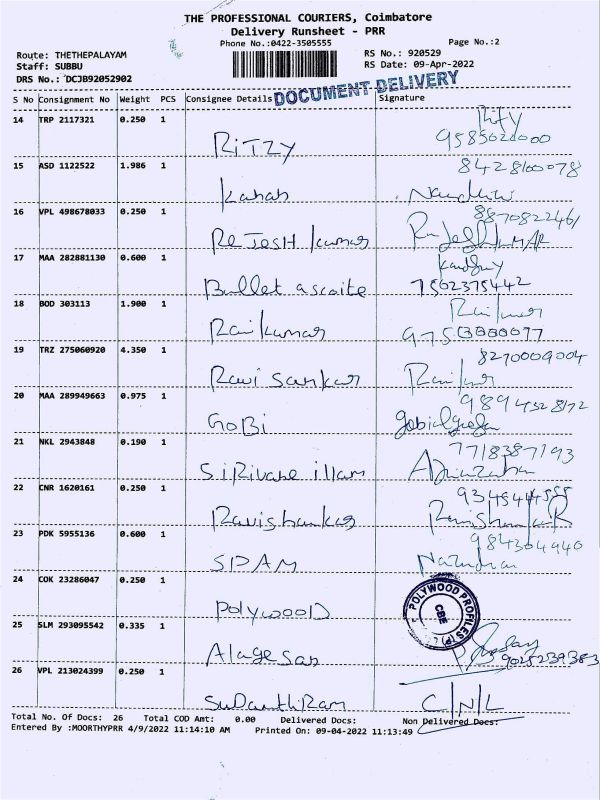 THE PROFESSIONAL COURIERS, Coimbatore
Delivery Runsheet - PRR
Phone No.:0422-3505555 Page No.:2
Route: THETHEPALAYAM RS No.: 920529
Staff: SUBBU RS Date: 09-Apr-2022
DRS No.: DCJB92052902
DOCUMENT DELIVERY
S No Consignment No Weight PCS Consignee Details Signature
14 TRP 2117321 0.250 1
RITZY
15 ASD 1122522 1.986 1 8428100078
Kahah
16 VPL 498678033 0.250 1 8870822461
ReJesh kumar
17 MAA 282881130 0.600 1
Bullet ascaite 7502375442
18 BOD 303113 1.900 1
Raikumar
19 TRZ 275060920 4.350 1 8270009004
Ravi sankar
20 MAA 289949663 0.975 1 9894328172
GoBi
21 NKL 2943848 0.190 1 7718387193
illam
22 CNR 1620161 0.250 1
Ravishankar
23 PDK 5955136 0.600 1 984304940
SPAM
24 COK 23286047 0.250 1
Polywood
POLYWOOD PROFILES (P)
CBE
25 SLM 293095542 0.335 1
Alagesan 9025239383
26 VPL 213024399 0.250 1
C/N/L
Total No. Of Docs: 26 Total COD Amt: 0.00 Delivered Docs: Non Delivered Docs:
Entered By :MOORTHYPRR 4/9/2022 11:14:10 AM Printed On: 09-04-2022 11:13:49